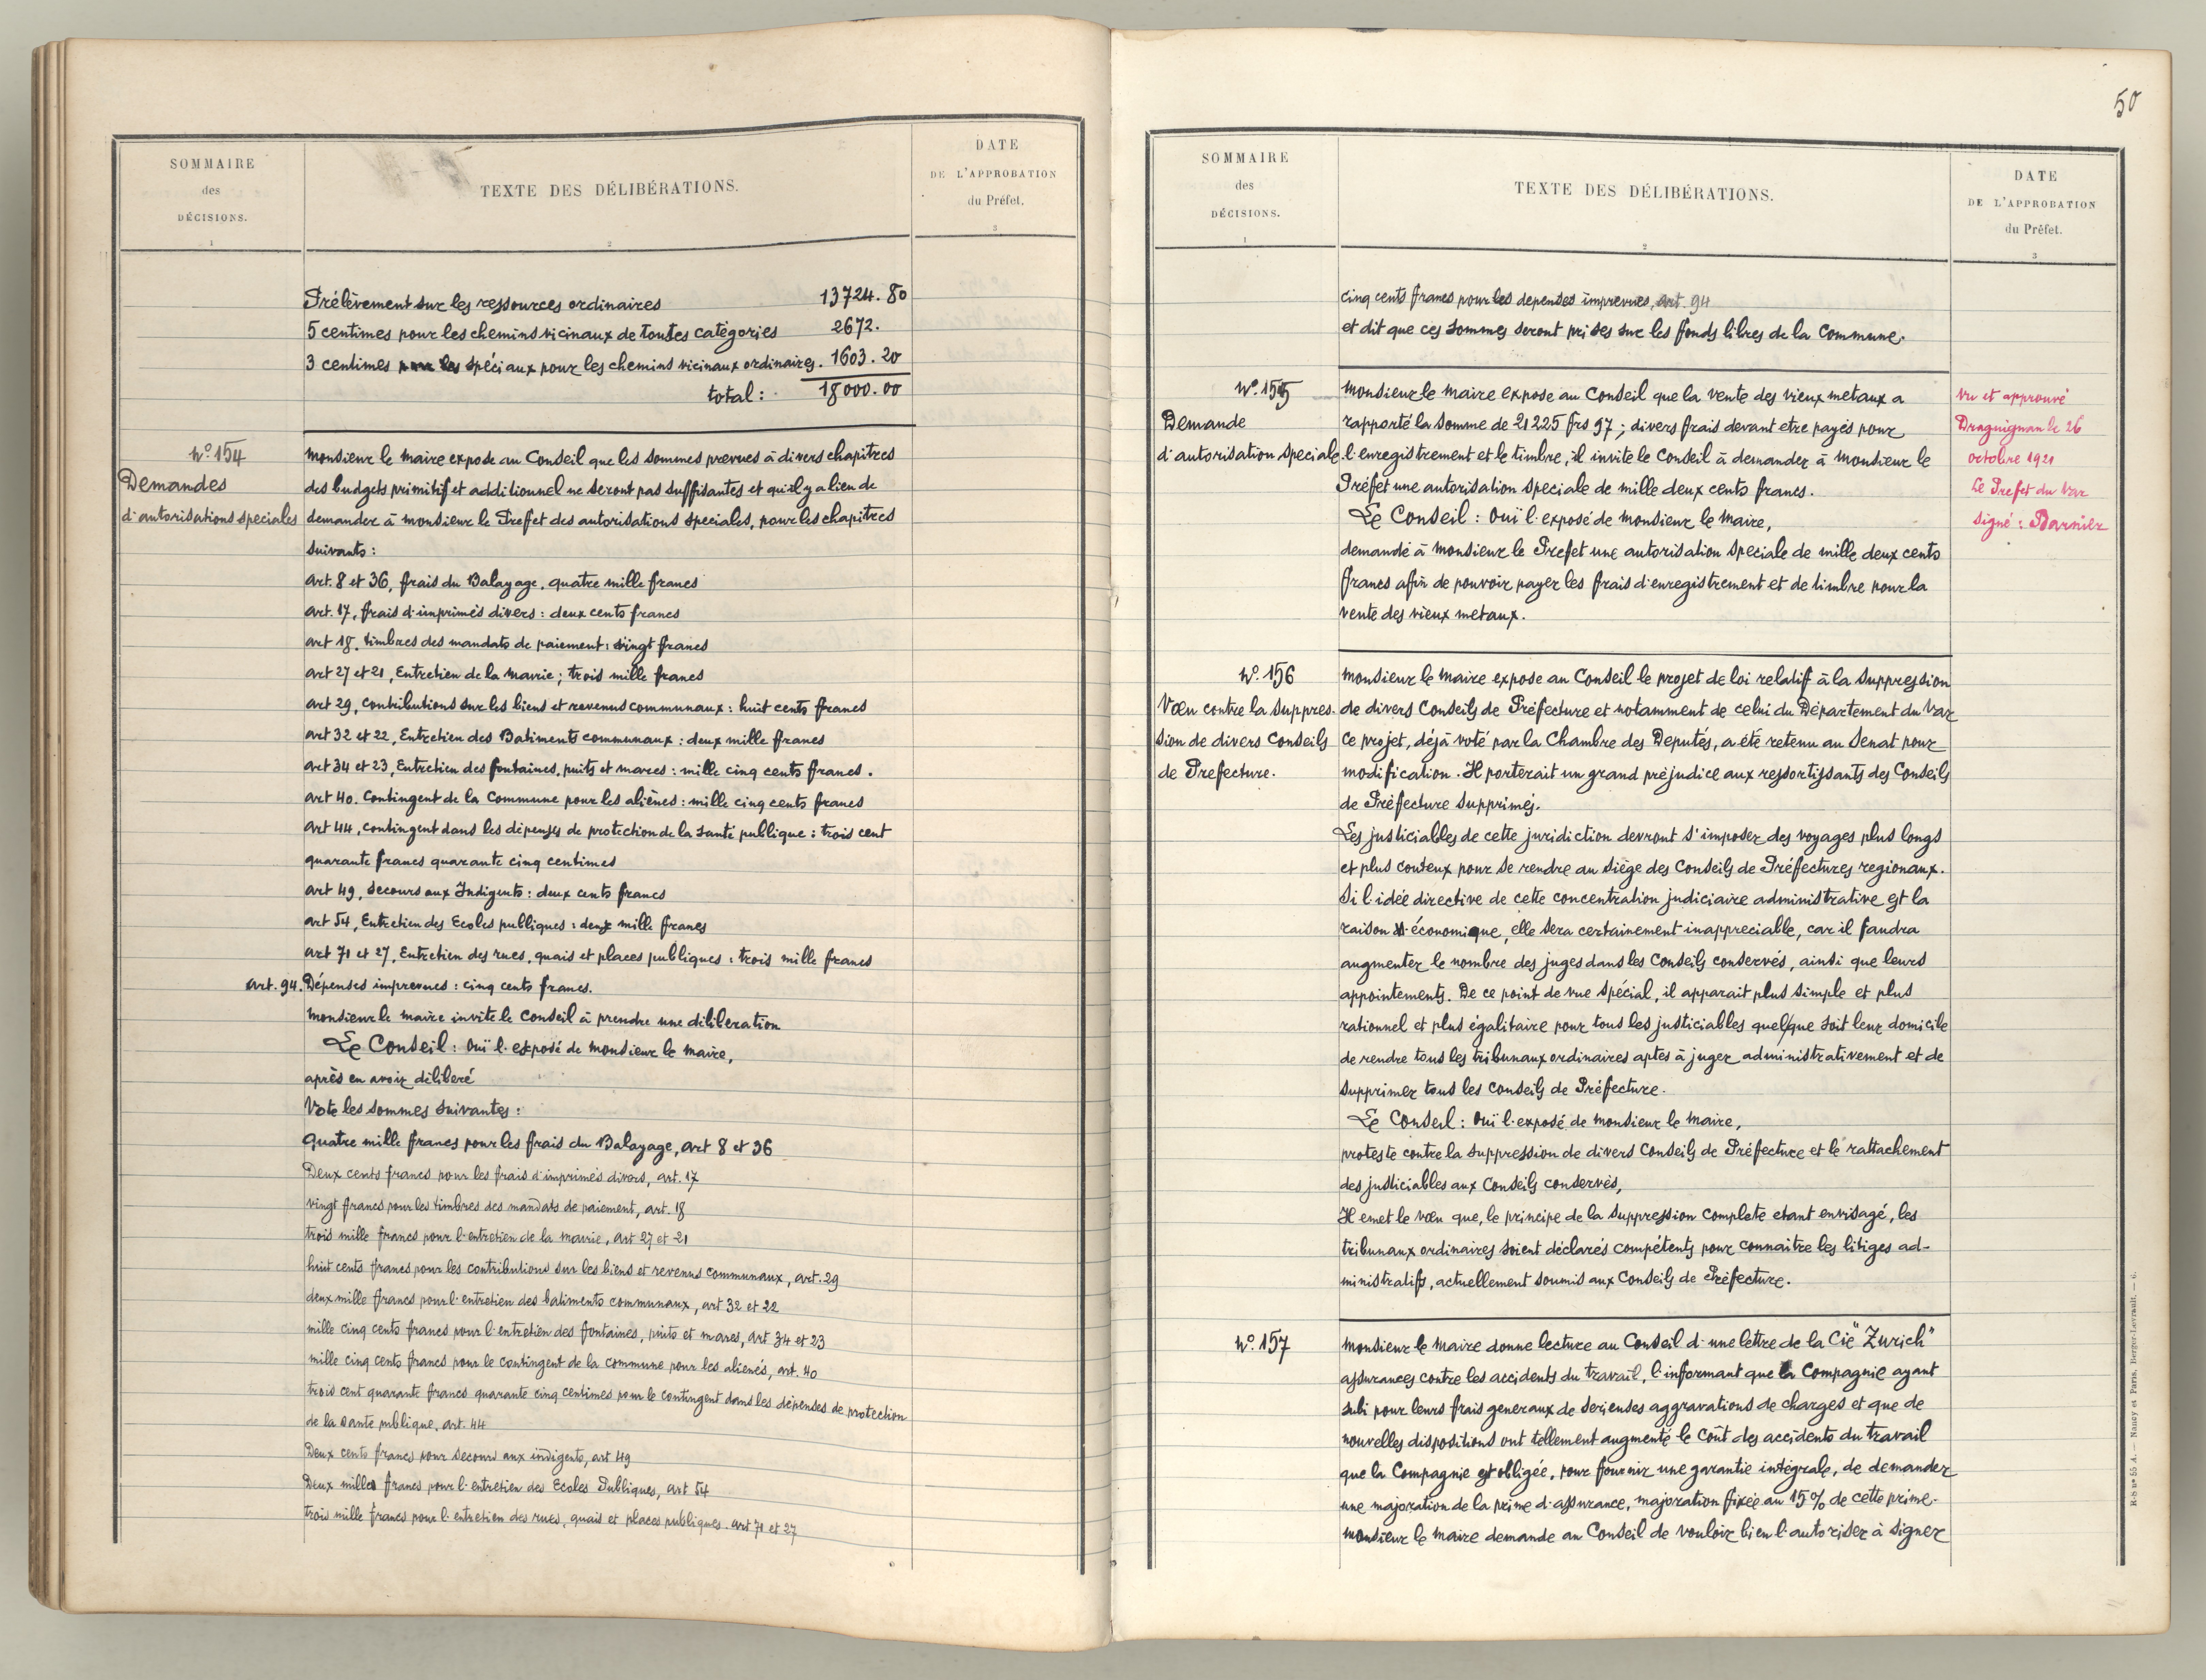 SOMMAIRE
des
DÉCISIONS.
1
TEXTE DES DÉLIBÉRATIONS.
2
DATE
DE L'APPROBATION
du Préfet.
3
Prélèvement sur les ressources ordinaires 13724.80
5 centimes pour les chemins vicinaux de toutes catégories 2672.
3 centimes spéciaux pour les chemins vicinaux ordinaires. 1603.20
total: 18000.00
N° 154
Demandes
d'autorisations speciales
Monsieur le Maire expose au Conseil que les sommes prevues à divers chapitres
des budgets primitif et additionnel ne seront pas suffisantes et qu'il y a lieu de
demander à Monsieur le Preffet des autorisations speciales, pour les chapitres
suivants:
Art. 8 et 36, frais du Balayage, quatre mille francs
Art. 17, frais d'imprimés divers: deux cents francs
Art 18. timbres des mandats de paiement: vingt francs
Art 27 et 21, Entretien de la Mairie; trois mille francs
Art 29, contributions sur les biens et revenus communaux: huit cents francs
Art 32 et 22, Entretien des Batiments communaux: deux mille francs
Art 34 et 23, Entretien des fontaines, puits et mares: mille cinq cents francs.
Art 40. Contingent de la Commune pour les aliénés: mille cinq cents francs
Art 44, contingent dans les dépenses de protection de la santé publique: trois cent
quarante francs quarante cinq centimes
Art 49, Secours aux Indigents: deux cents francs
Art 54, Entretien des Ecoles publiques: deux mille francs
Art 71 et 27, Entretien des rues, quais et places publiques: trois mille francs
Art. 94. Dépenses imprevues: cinq cents francs.
Monsieur le Maire invite le Conseil à prendre une déliberation
Le Conseil: Ouï l'exposé de Monsieur le Maire,
après en avoir déliberé
Vote les sommes suivantes:
Quatre mille francs pour les frais du Balayage, Art 8 et 36
Deux cents francs pour les frais d'imprimés divers, art. 17
vingt francs pour les timbres des mandats de paiement, art. 18
trois mille francs pour l'entretien de la Mairie, Art 27 et 21
huit cents francs pour les contributions sur les biens et revenus communaux, art. 29
deux mille francs pour l'entretien des batiments communaux, art 32 et 22
mille cinq cents francs pour l'entretien des fontaines, puits et mares, Art 34 et 23
mille cinq cents francs pour le contingent de la commune pour les alienés, art. 40
trois cent quarante francs quarante cinq centimes pour le contingent dans les dépenses de protection
de la sante publique, art. 44
Deux cents francs pour Secours aux indigents, art 49
Deux milles francs pour l'entretien des Ecoles Publiques, art 54
trois mille francs pour l'entretien des rues, quais et places publiques. Art 71 et 27
50
SOMMAIRE
des
DÉCISIONS.
1
TEXTE DES DÉLIBÉRATIONS.
2
DATE
DE L'APPROBATION
du Préfet.
3
cinq cents francs pour les depenses imprevues, art. 94
et dit que ces sommes seront prises sur les fonds libres de la Commune.
N° 155
Demande
d'autorisation speciale
Monsieur le Maire expose au Conseil que la vente des vieux metaux a
rapporté la somme de 21225 frs 97; divers frais devant etre payés pour
l'enregistrement et le timbre, il invite le Conseil à demander à Monsieur le
Préfet une autorisation speciale de mille deux cents francs.
Le Conseil: Ouï l'exposé de Monsieur le Maire,
demande à Monsieur le Prefet une autorisation speciale de mille deux cents
francs afin de pouvoir payer les frais d'enregistrement et de timbre pour la
vente des vieux metaux.
Vu et approuvé
Draguignan le 26
octobre 1921
Le Prefet du Var
Signé: Barnier
N° 156
Voeu contre la Suppres-
sion de divers Conseils
de Prefecture.
Monsieur le Maire expose au Conseil le projet de loi relatif à la suppression
de divers Conseils de Préfecture et notamment de celui du Département du Var
Ce projet, déjà voté par la Chambre des Deputés, a été retenu au Senat pour
modification. Il porterait un grand préjudice aux ressortissants des Conseils
de Préfecture supprimés.
Les justiciables de cette juridiction devront s'imposer des voyages plus longs
et plus couteux pour se rendre au siège des Conseils de Préfectures regionaux.
Si l'idée directive de cette concentration judiciaire administrative est la
raison économique, elle sera certainement inappreciable, car il faudra
augmenter le nombre des juges dans les Conseils conservés, ainsi que leurs
appointements. De ce point de vue spécial, il apparait plus simple et plus
rationnel et plus égalitaire pour tous les justiciables quel que soit leur domicile
de rendre tous les tribunaux ordinaires aptes à juger administrativement et de
supprimer tous les conseils de Préfecture.
Le Conseil: Ouï l'exposé de Monsieur le Maire,
proteste contre la suppression de divers Conseils de Préfecture et le rattachement
des justiciables aux Conseils conservés,
Il emet le voeu que, le principe de la Suppression complete etant envisagé, les
tribunaux ordinaires soient déclarés compétents pour connaitre les litiges ad-
ministratifs, actuellement soumis aux Conseils de Préfecture.
N° 157
Monsieur le Maire donne lecture au Conseil d'une lettre de la Cie "Zurich"
assurances contre les accidents du travail, l'informant que la Compagnie ayant
subi pour leurs frais generaux de serieuses aggravations de charges et que de
nouvelles dispositions ont tellement augmenté le coût des accidents du travail
que la Compagnie est obligée, pour fournir une garantie intégrale, de demander
une majoration de la prime d'assurance, majoration fixée au 15% de cette prime.
Monsieur le Maire demande au Conseil de vouloir bien l'autoriser à signer
R-S n° 55 A. — Nancy et Paris, Berger-Levrault. — 6.